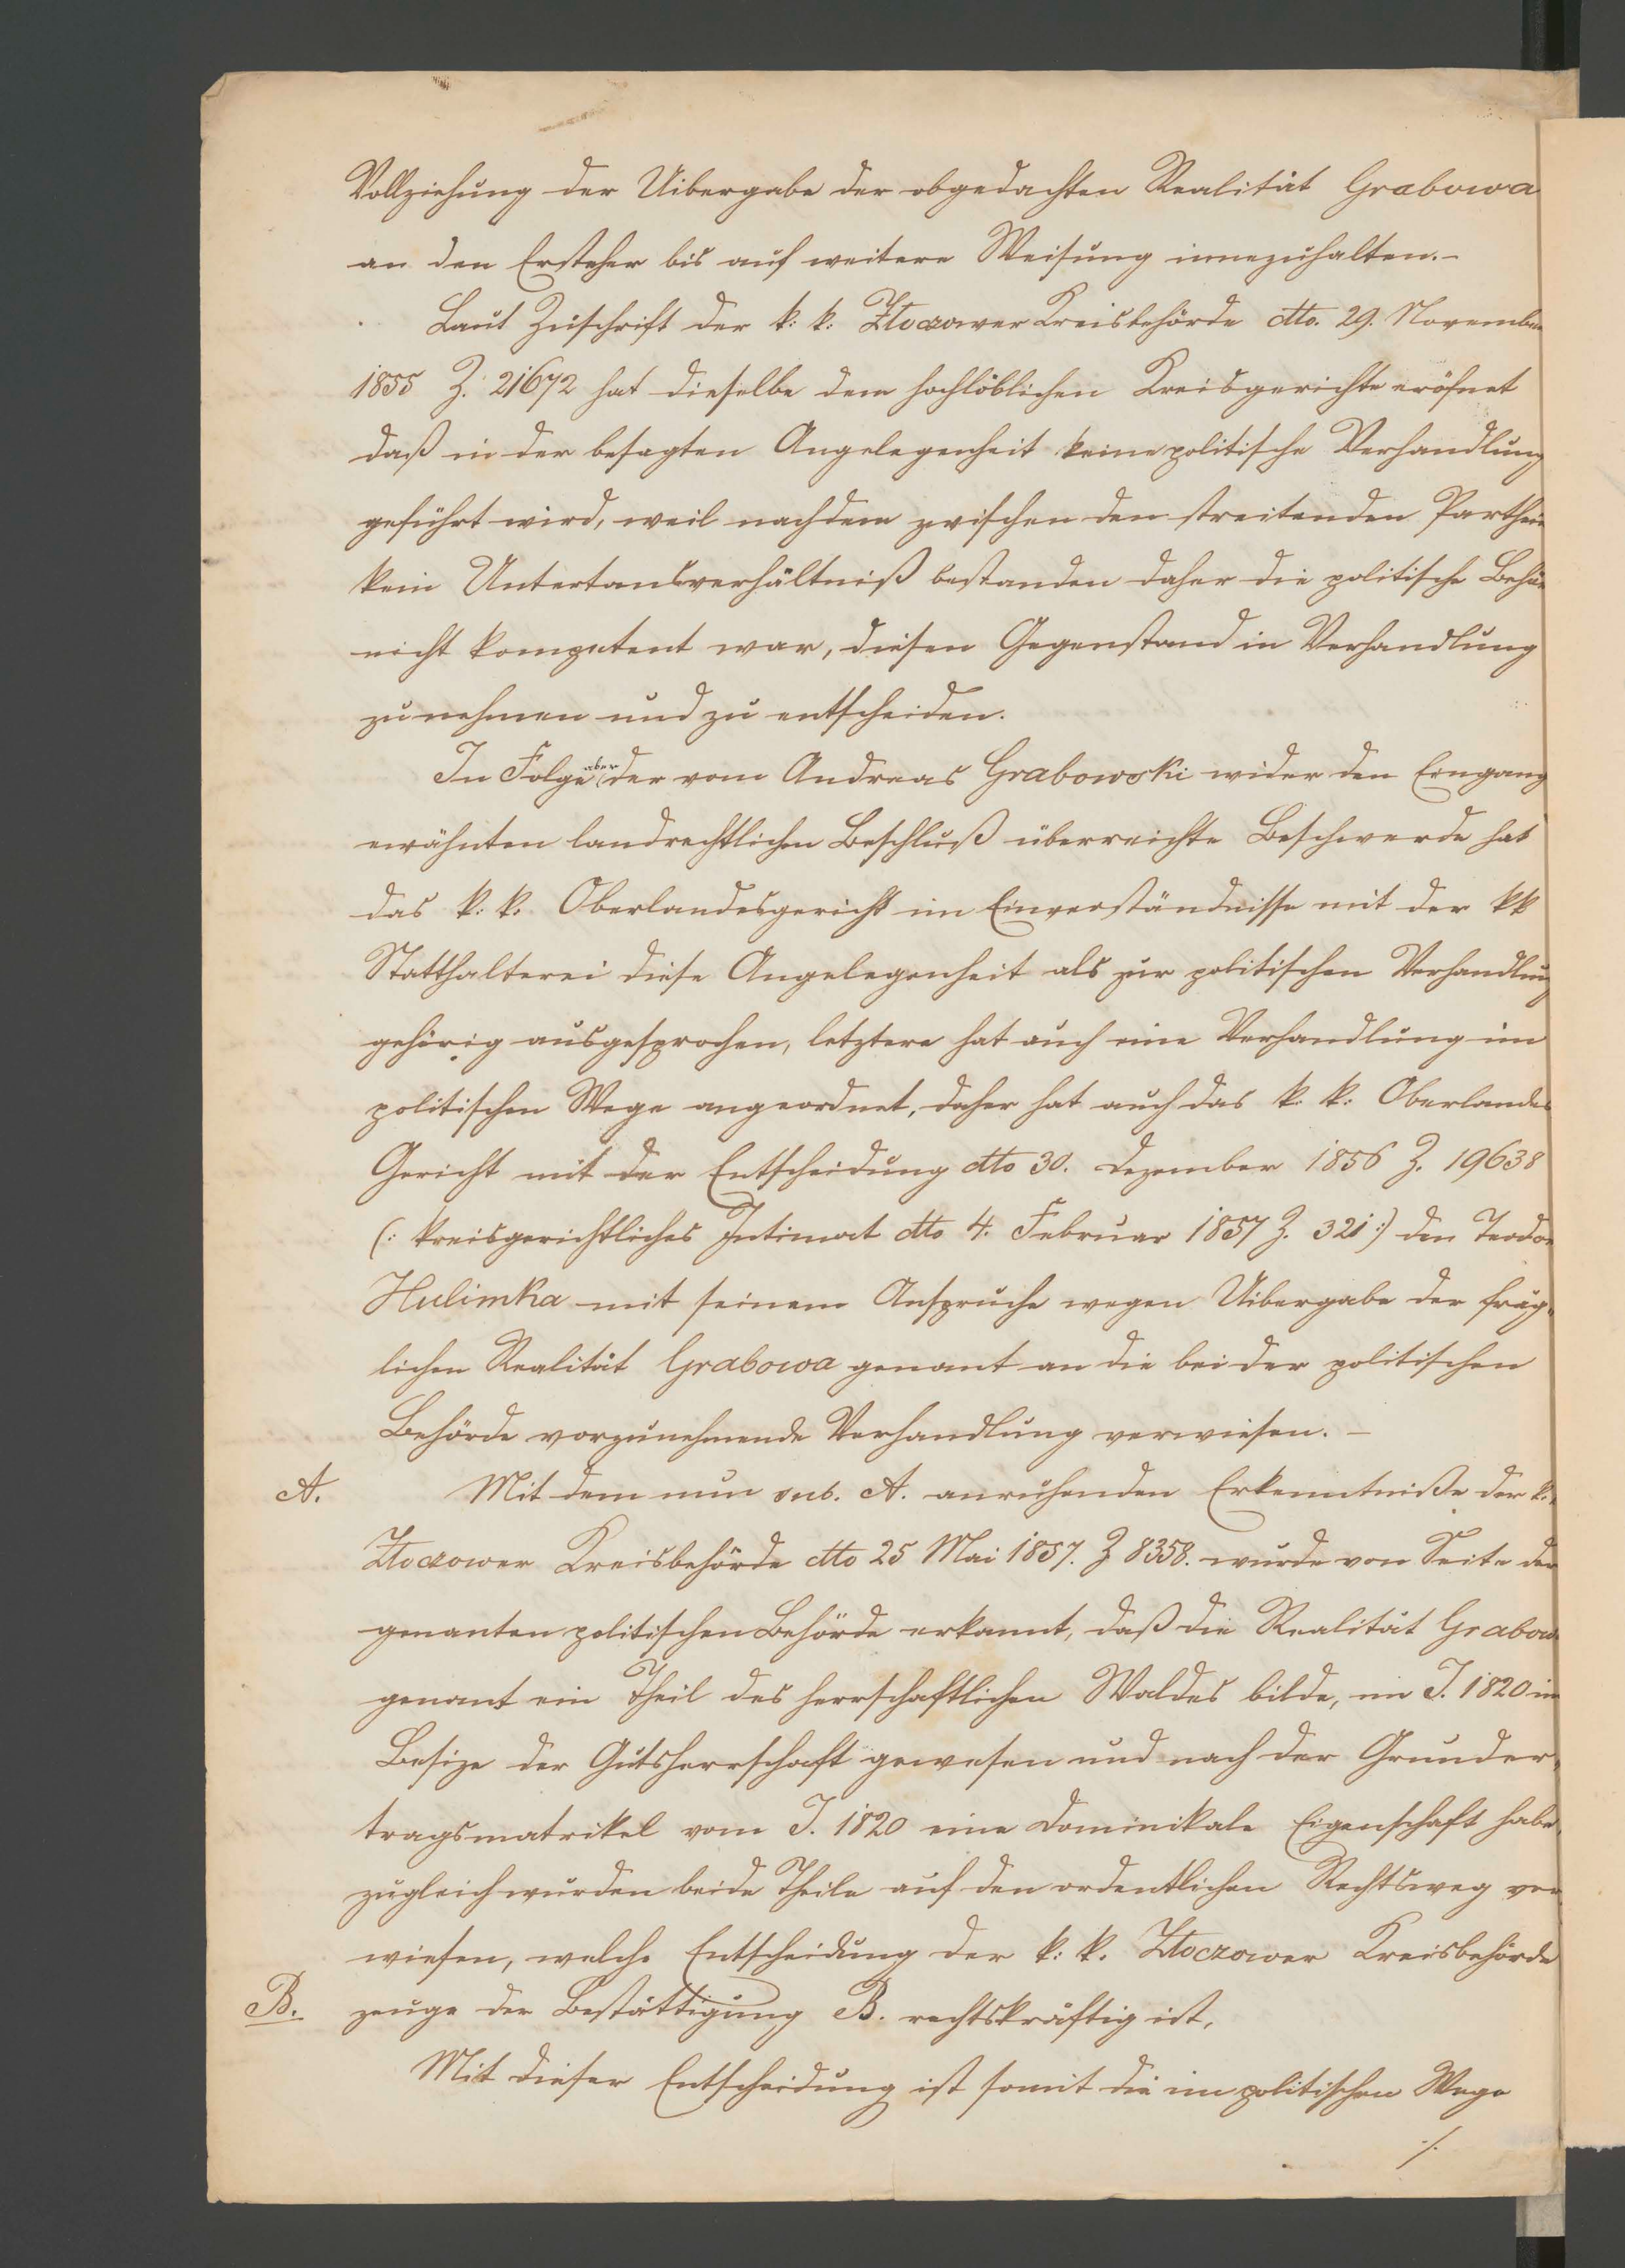 Vollziehung der Uibergabe der obgedachten Realität Grabowa
an den Ersteher bis auf weitere Weisung innezuhalten.-
Laut Zuschrift der k: k: Złoczower Kreisbehörde dto. 29. November
1855 Z. 21672 hat dieselbe dem hochlöblichen Kreisgerichte eröfnet
daß in der besagten Angelegenheit keine politische Verhandlung
geführt wird, weil nachdem zwischen den streitenden Parthein
kein Untertansverhältniß bestanden daher die politische Behör
nicht kompetent war, diesen Gegenstand in Verhandlung
zu nehmen und zu entscheiden.
In Folge aber der vom Andreas Grabowski wider den Eingang
erwähnten landrechtlichen Beschluß überreichte Beschwerde hat
das k. k. Oberlandesgericht im Einverständnisse mit der kk
Statthalterei diese Angelegenheit als zur politischen Verhandlung
gehörig ausgesprochen, letztere hat auch eine Verhandlung im
politischen Wege angeordnet, daher hat auch das k. k: Oberlandes
Gericht mit der Entscheidung dto 30. Dezember 1856 Z. 19638
(: kreisgerichtliches Intimat dto 4. Februar 1857 Z. 321 :) den Teodor
Hulimka mit seinem Anspruche wegen Uibergabe der frag„
lichen Realität Grabowa genant an die bei der politischen
Behörde vorzunehmende Verhandlung verwiesen. -
A. Mit dem nun sub. A. anruhenden Erkenntniße der k.
Złoczower Kreisbehörde dto 25 Mai 1857. Z 8358. wurde von Seite der
genanten politischen Behörde erkannt, daß die Realität Grabow
genant ein Theil des herrschaftlichen Waldes bilde, im J. 1820 im
Besize der Gutsherrschaft gewesen und nach der Grunder„
tragsmatrikel vom J. 1820 eine Dominikale Eigenschaft habe,
zugleich wurden beide Theile auf den ordentlichen Rechtsweg ver
wiesen, welche Entscheidung der k: k. Złoczower Kreisbehörde
B. zeuge der Bestättigung B. rechtskräftig ist,
Mit dieser Entscheidung ist somit die im politischen Wege
./.